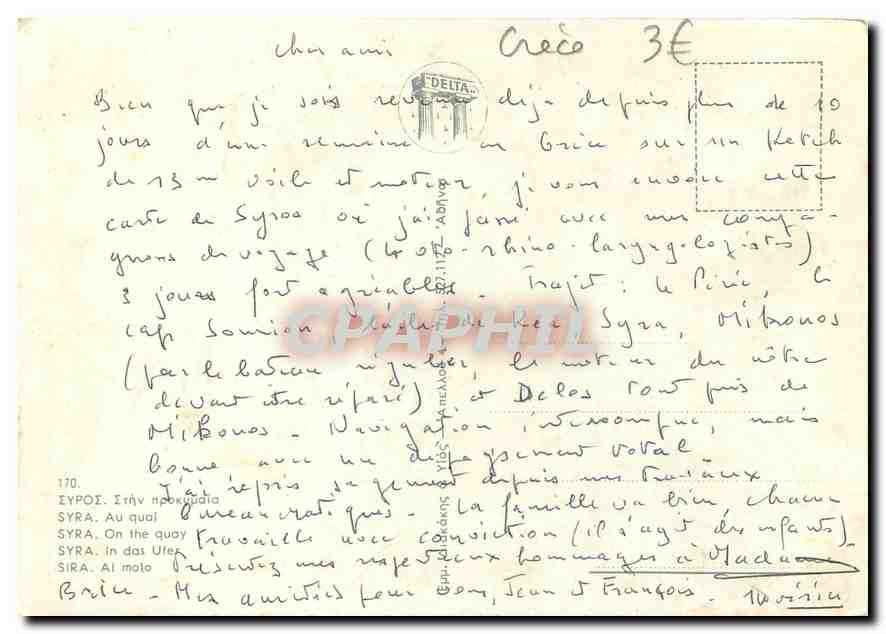 Cher ami
Grèce 3€
DELTA
Bien que je sois revenu déjà depuis plus de 10
jours d'une semaine en Grèce sur un Ketch
de 13 m voile et moteur, je vous envoie cette
carte de Syros où j'ai passé avec mes compa-
gnons de voyage (4 oto-rhino-laryngologistes)
3 jours fort agréables. Trajet : le Pirée, le
cap Sounion, de Kea, Syra, Mikonos
(par le bateau régulier, le moteur du nôtre
devant être réparé) et Delos tout près de
Mikonos. Navigation interrompue, mais
bonne avec un dépaysement total
J'ai repris sagement depuis mes travaux
bureaucratiques. La famille va bien, chacun
travaille avec conviction (il s'agit des enfants).
Présentez mes respectueux hommages à Madame
Mes amitiés pour vous, Jean et François.
170.
ΣΥΡΟΣ. Στήν προκυμαία
SYRA. Au quai
SYRA. On the quay
SYRA. In das Ufer
SIRA. Al molo
Υἱός Ἀπελλοῦ 4 Τηλ. Ἀθῆναι
CPAPHIL